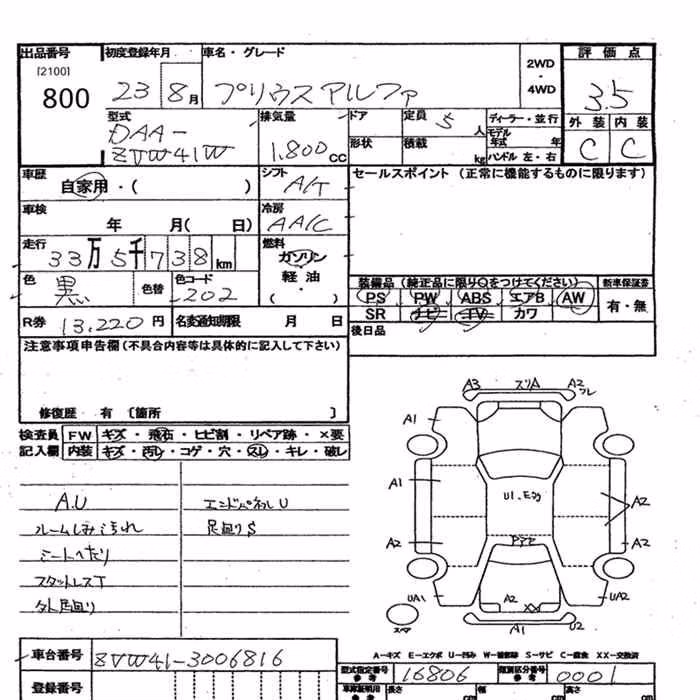 出品番号 初度登録年月 車名・グレード 2WD・4WD 評価点
[2100]
800 23 8月 プリウスアルファ 3.5
型式 排気量 ドア 定員 5人 ディーラー・並行 外装 内装
DAA- モデル年式 年 C C
ZVW41W 1.800cc 形状 積載 kg ハンドル 左・右
車歴 シフト セールスポイント (正常に機能するものに限ります)
自家用・( ) A/T
車検 冷房
年 月( 日) AA/C
走行 燃料
33万5千738km ガソリン
色 色替 色コード 軽油 装備品 (純正品に限り○をつけてください) 新車保証書
黒 202 ・( ) PS PW ABS エアB AW 有・無
R券 13,220円 名変通知期限 月 日 SR ナビ TV カワ
後日品
注意事項申告欄(不具合内容等は具体的に記入して下さい)
修復歴 有 〔箇所 〕
検査員 FW キズ・飛石・ヒビ割・リペア跡・×要
記入欄 内装 キズ・汚レ・コゲ・穴・スレ・キレ・破レ
A.U エンドパネルU
ルームしみ汚れ 足廻りS
シートへたり
スタットレスT
タイヤ足廻り
A3 スリA A2
A1
A1 U1.
A2 A2
A2
UA1 A2 XX UA2
スペア A1 U2
A-キズ E-エクボ U-凹み W-補修跡 S-サビ C-腐食 XX-交換済
車台番号 ZVW41-3006816
型式指定番号 参考 16806 類別区分番号 参考 0001
登録番号 長さ cm 幅 cm 高さ cm